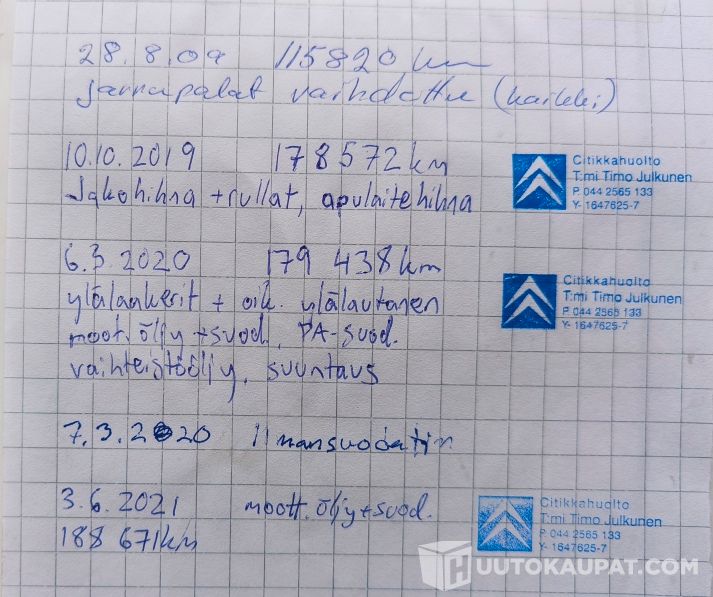 28.8.09 115820 km
Jarrupalat vaihdettu (kaikki)
10.10.2019 178572km
Jakohihna + rullat, apulaitehihna
Citikkahuolto
T:mi Timo Julkunen
P 044 2565 133
Y- 1647625-7
6.3.2020 179 438km
ylälaakerit + oik. ylälautanen
moot. öljy + suod., PA-suod.
vaihteistoöljy, suuntaus
Citikkahuolto
T:mi Timo Julkunen
P 044 2565 133
Y- 1647625-7
7.3.2020 Ilmansuodatin
3.6.2021 moott. öljy + suod.
188 671km
Citikkahuolto
T:mi Timo Julkunen
P 044 2565 133
Y- 1647625-7
HUUTOKAUPAT.COM